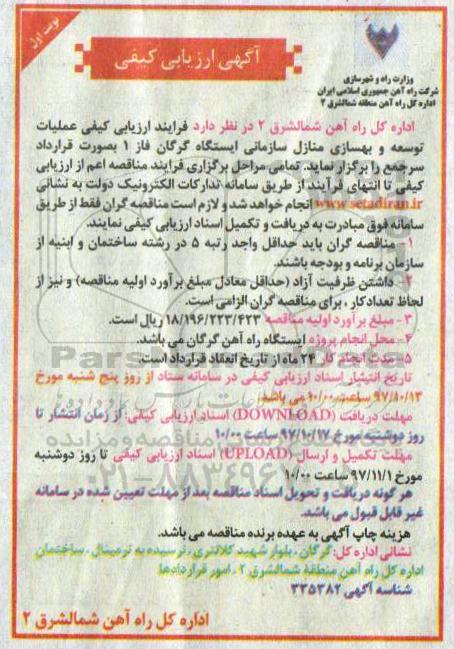 نوبت اول
آگهی ارزیابی کیفی
وزارت راه و شهرسازی
شرکت راه آهن جمهوری اسلامی ایران
اداره کل راه آهن منطقه شمالشرق ۲
اداره کل راه آهن شمالشرق ۲ در نظر دارد فرایند ارزیابی کیفی عملیات
توسعه و بهسازی منازل سازمانی ایستگاه گرگان فاز ۱ بصورت قرارداد
سرجمع را برگزار نماید. تمامی مراحل برگزاری فرایند مناقصه اعم از ارزیابی
کیفی تا انتهای فرآیند از طریق سامانه تدارکات الکترونیک دولت به نشانی
www.setadiran.ir انجام خواهد شد و لازم است مناقصه گران فقط از طریق
سامانه فوق مبادرت به دریافت و تکمیل اسناد ارزیابی کیفی نمایند.
۱- مناقصه گران باید حداقل واجد رتبه ۵ در رشته ساختمان و ابنیه از
سازمان برنامه و بودجه باشند.
۲- داشتن ظرفیت آزاد (حداقل معادل مبلغ برآورد اولیه مناقصه) و نیز از
لحاظ تعدادکار ، برای مناقصه گران الزامی است.
۳- مبلغ برآورد اولیه مناقصه ۱۸/۱۹۶/۲۲۳/۴۲۳ ریال است.
۴- محل انجام پروژه ایستگاه راه آهن گرگان می باشد.
۵- مدت انجام کار ۲۴ ماه از تاریخ انعقاد قرارداد است.
تاریخ انتشار اسناد ارزیابی کیفی در سامانه ستاد از روز پنج شنبه مورخ
۹۷/۱۰/۱۳ ساعت ۱۰/۰۰ می باشد.
مهلت دریافت (DOWNLOAD) اسناد ارزیابی کیفی: از زمان انتشار تا
روز دوشنبه مورخ ۹۷/۱۰/۱۷ ساعت ۱۰/۰۰
مهلت تکمیل و ارسال (UPLOAD) اسناد ارزیابی کیفی تا روز دوشنبه
مورخ ۹۷/۱۱/۱ ساعت ۱۰/۰۰
هر گونه دریافت و تحویل اسناد مناقصه بعد از مهلت تعیین شده در سامانه
غیر قابل قبول می باشد.
هزینه چاپ آگهی به عهده برنده مناقصه می باشد.
نشانی اداره کل: گرگان ، بلوار شهید کلانتری ، نرسیده به ترمینال ، ساختمان
اداره کل راه آهن منطقه شمالشرق ۲ ، امور قراردادها
شناسه آگهی ۳۳۵۳۸۲
اداره کل راه آهن شمالشرق ۲